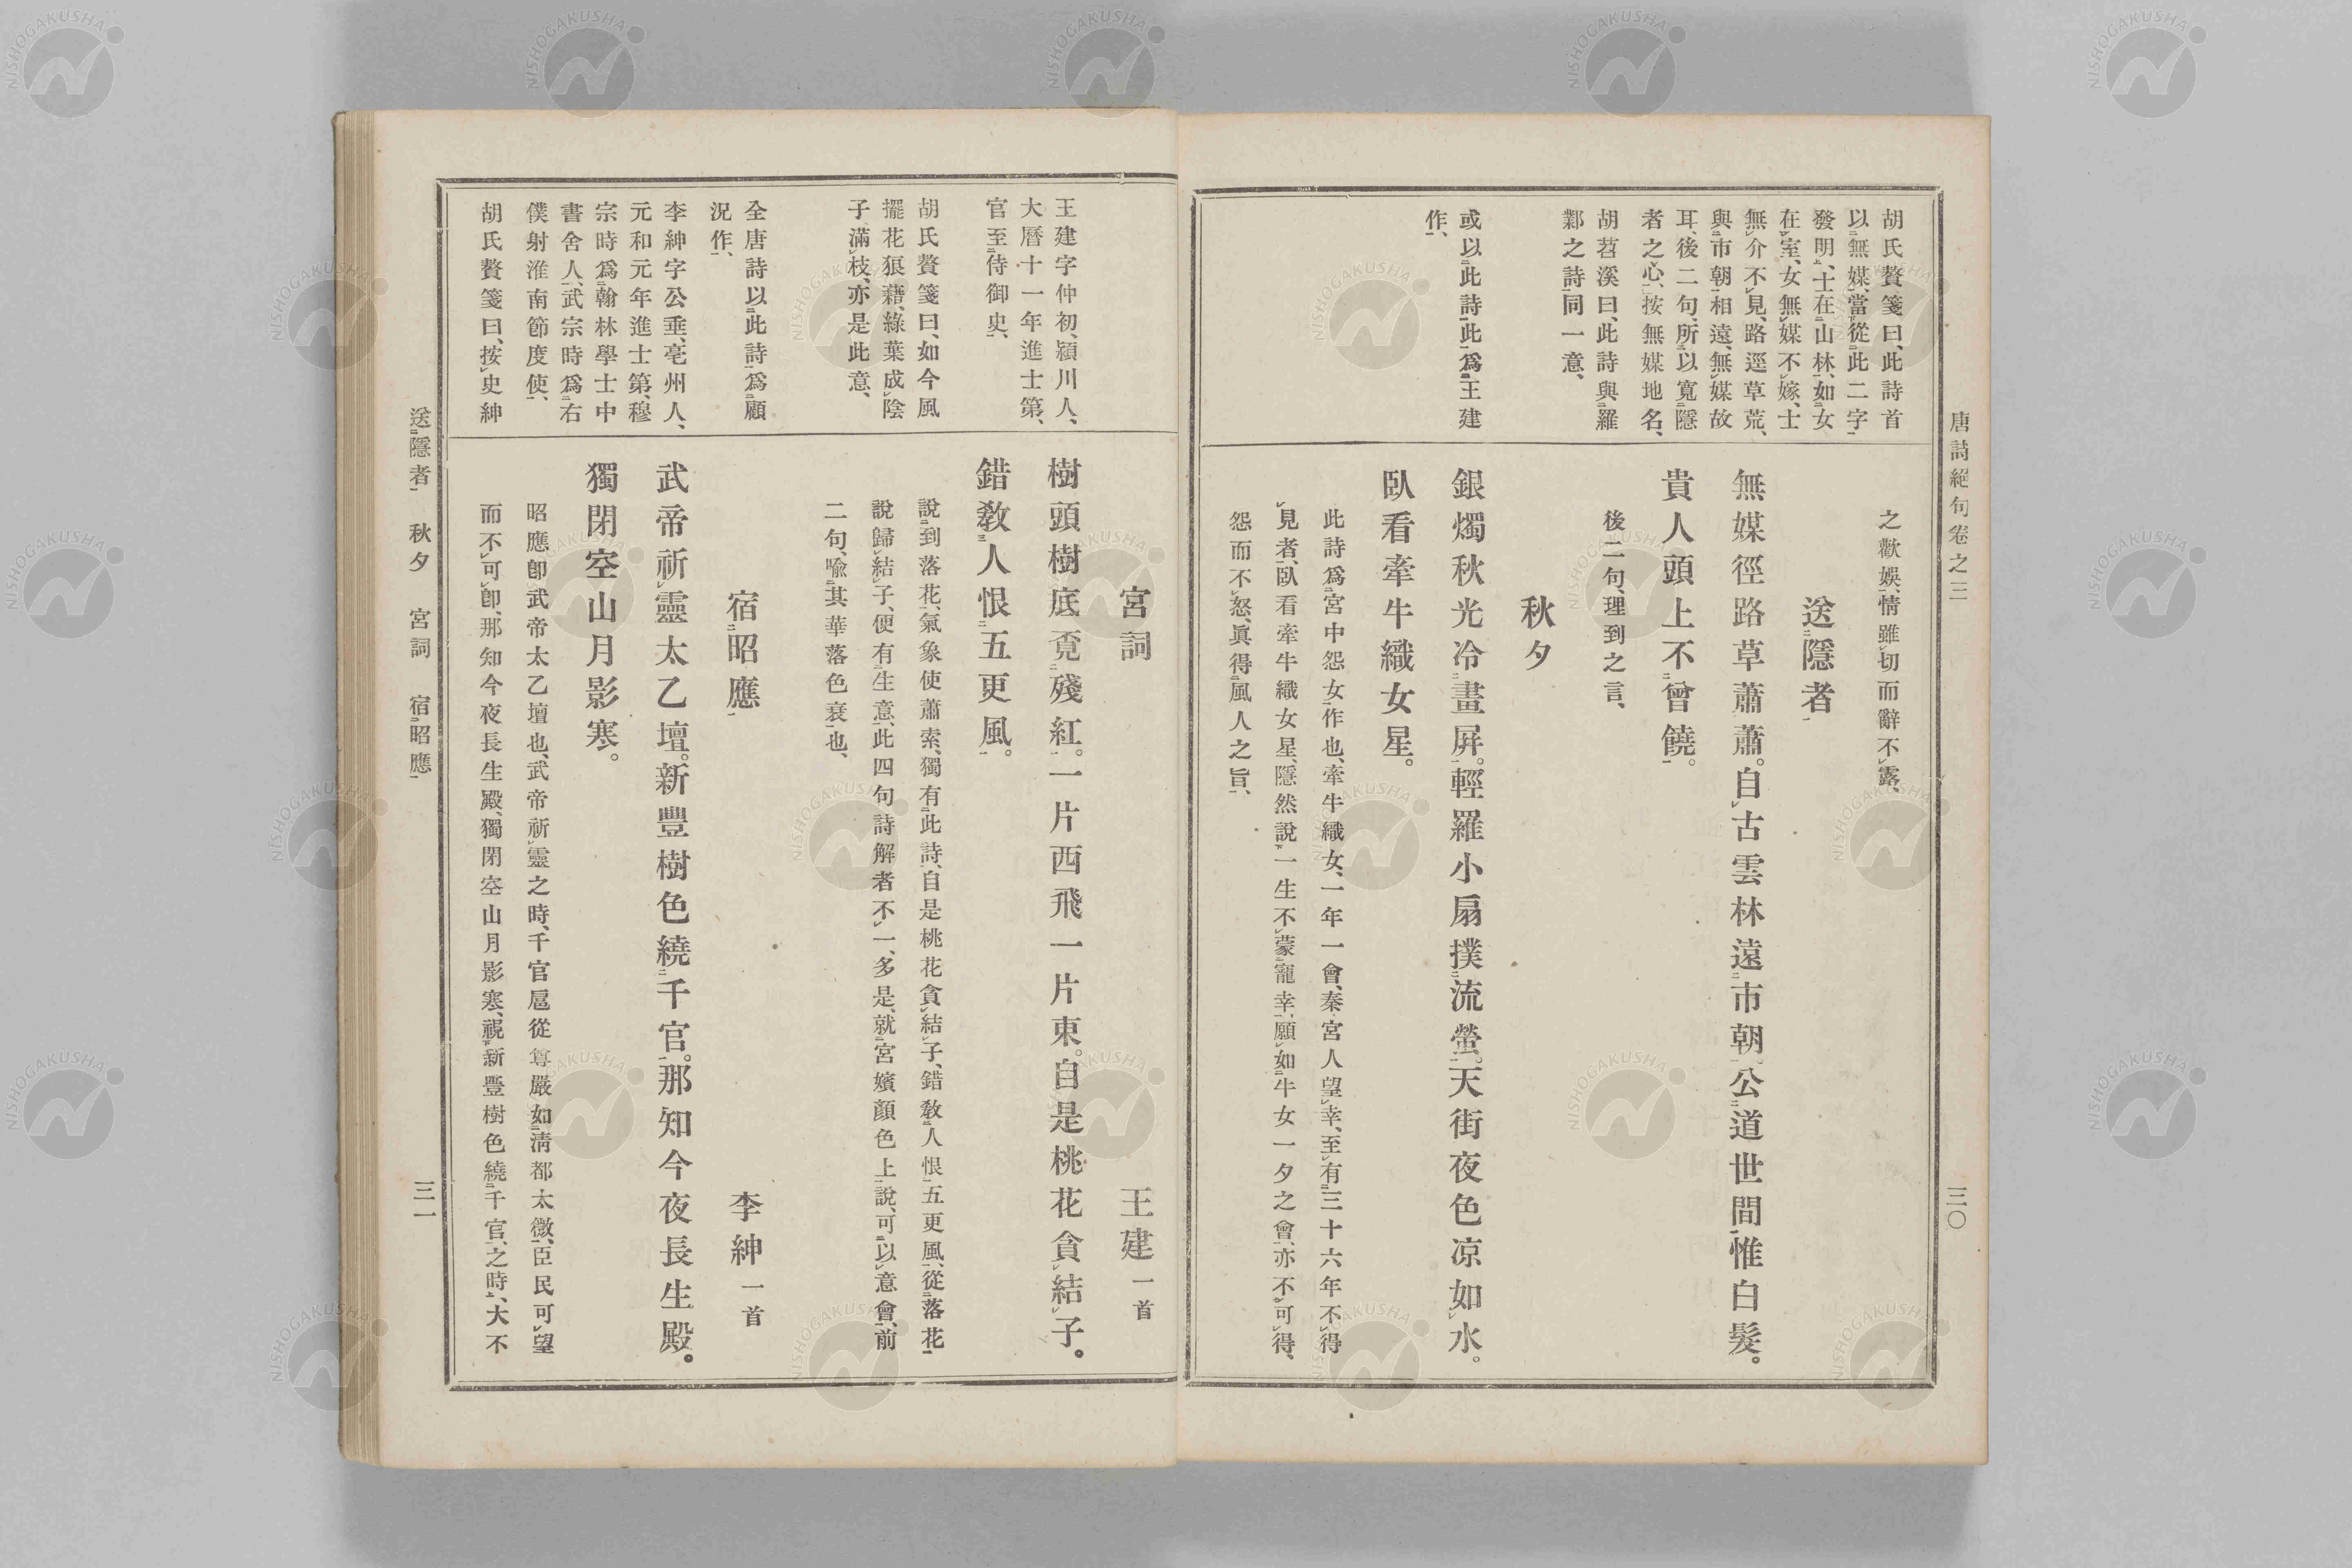 唐詩絕句卷之三
三〇
胡氏贅箋曰、此詩首
以無媒、當從此二字
發明、士在山林、如女
在室、女無媒不嫁、士
無介不見、路逕草荒、
與市朝相遠、無媒故
耳、後二句、所以寬隱
者之心、按無媒地名、
胡苕溪曰、此詩與羅
鄴之詩同一意、
或以此詩此爲王建
作、
之歡娛、情雖切而辭不露、
送隱者
無媒徑路草蕭蕭。自古雲林遠市朝。公道世間惟白髮。
貴人頭上不曾饒。
後二句、理到之言、
秋夕
銀燭秋光冷畫屛。輕羅小扇撲流螢。天街夜色凉如水。
臥看牽牛織女星。
此詩爲宮中怨女作也、牽牛織女、一年一會、秦宮人望幸、至有三十六年不得
見者、臥看牽牛織女星、隱然說一生不蒙寵幸、願如牛女一夕之會、亦不可得、
怨而不怒、眞得風人之旨、
王建字仲初、潁川人、
大曆十一年進士第、
官至侍御史、
胡氏贅箋曰、如今風
擺花狼藉、綠葉成陰
子滿枝、亦是此意、
全唐詩以此詩爲顧
況作、
李紳字公垂、亳州人、
元和元年進士第、穆
宗時爲翰林學士中
書舍人、武宗時爲右
僕射淮南節度使、
胡氏贅箋曰、按史紳
宮詞 王建一首
樹頭樹底覓殘紅。一片西飛一片東。自是桃花貪結子。
錯敎人恨五更風。
說到落花、氣象使蕭索、獨有此詩、自是桃花貪結子、錯敎人恨五更風、從落花
說歸結子、便有生意、此四句詩解者不一、多是就宮嬪顏色上說、可以意會、前
二句、喩其華落色衰也、
宿昭應 李紳一首
武帝祈靈太乙壇。新豐樹色繞千官。那知今夜長生殿。
獨閉空山月影寒。
昭應卽武帝太乙壇也、武帝祈靈之時、千官扈從尊嚴如淸都太微、臣民可望
而不可卽、那知今夜長生殿、獨閉空山月影寒、視新豐樹色繞千官之時、大不
送隱者 秋夕 宮詞 宿昭應
三一